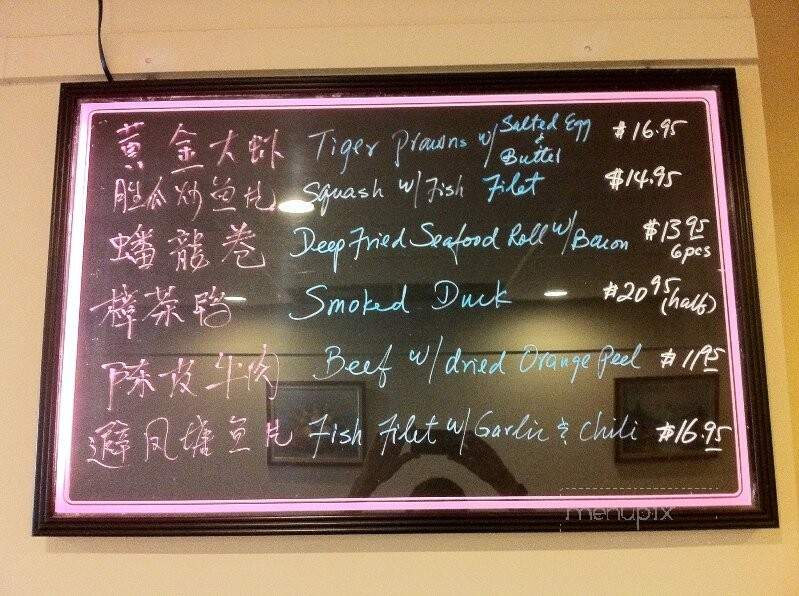 黄金大虾 Tiger Prawns w/ Salted Egg & Butter $16.95
胜瓜炒鱼片 Squash w/ Fish Filet $14.95
蟠龍卷 Deep Fried Seafood Roll w/ Bacon $13.95 6pcs
樟茶鸭 Smoked Duck $20.95 (half)
陈皮牛肉 Beef w/ dried Orange Peel $11.95
避风塘鱼片 Fish Filet w/ Garlic & Chili $16.95
menupix